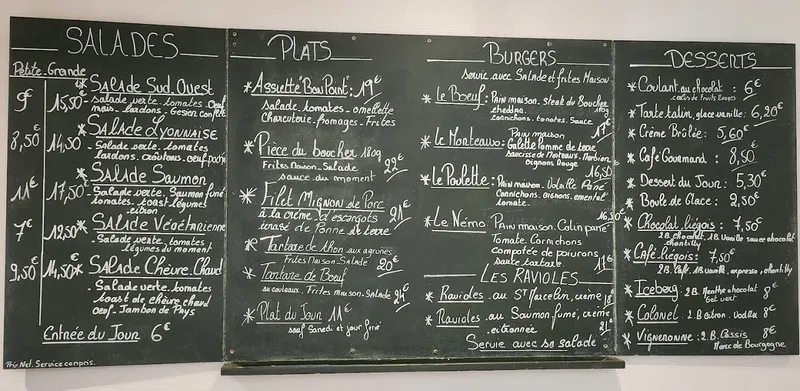 SALADES
Petite. Grande
* Salade Sud. Ouest
9€ 15,50€
salade verte. tomates. Oeuf
maïs. lardons. Gesier confit
* Salade Lyonnaise
8,50€ 14,50€
Salade verte. tomates
lardons. croûtons. oeuf poché
* Salade Saumon
11€ 17,50€
Salade verte. Saumon fumé
tomates. toast. légumes
citron
7€ 12,50€ * Salade Végétarienne
Salade verte. tomates.
légumes du moment
9,50€ 14,50€ * Salade Chèvre. Chaud
Salade verte. tomates
toast de chèvre chaud
oeuf. Jambon de Pays
Entrée du Jour 6€
Prix Net. Service compris.
PLATS
* Assiette "Bon Point": 19€
salade. tomates. omellette
charcuterie. fromages. Frites
* Piece du boucher 180g
Frites Maison. Salade
sauce du moment
* Filet Mignon de Porc
à la crème d'escargots 21€
écrasé de Pomme de terre
* Tartare de thon aux agrumes
Frites Maison. Salade 20€
* Tartare de Boeuf
au couteaux. Frites maison. Salade 24€
* Plat du Jour 11€
sauf Samedi et jour férié
BURGERS
servie avec Salade et frites Maison
* le Boeuf: Pain maison. steak du Boucher
cheddar.
cornichons. tomates. Sauce
* Le Monteauso: Pain maison
Galette Pomme de terre
saucisse de Morteaux.
oignons rouge
16,50
* Le Poulette: Pain maison. Volaille Pané
Cornichons. Oignons. emmental
tomate.
* Le Némo: Pain maison. Colin pané
Tomate. Cornichons
compotée de poivrons
sauce tartare
LES RAVIOLES
* Ravioles au St Marcelin, crème
* Ravioles au Saumon fumé, crème
citronnée 21€
Servie avec sa salade
DESSERTS
* Coulant au chocolat: 6€
coulis de fruits Rouges
* Tarte tatin, glace vanille: 6,20€
* Crème Brûlée: 5,60€
* Café Gourmand: 8,50€
* Dessert du Jour: 5,30€
* Boule de Glace: 2,50€
* Chocolat liégois: 7,50€
2B. chocolat, 1B. Vanille sauce chocolat
chantilly
* Café liégois: 7,50€
2B. Café 1B Vanille, expresso, chantilly
* Iceberg: 2B. Menthe chocolat
Get vert 8€
* Colonel: 2B citron. Vodka 8€
* Vigneronne: 2.B. Cassis 8€
Marc de Bourgogne